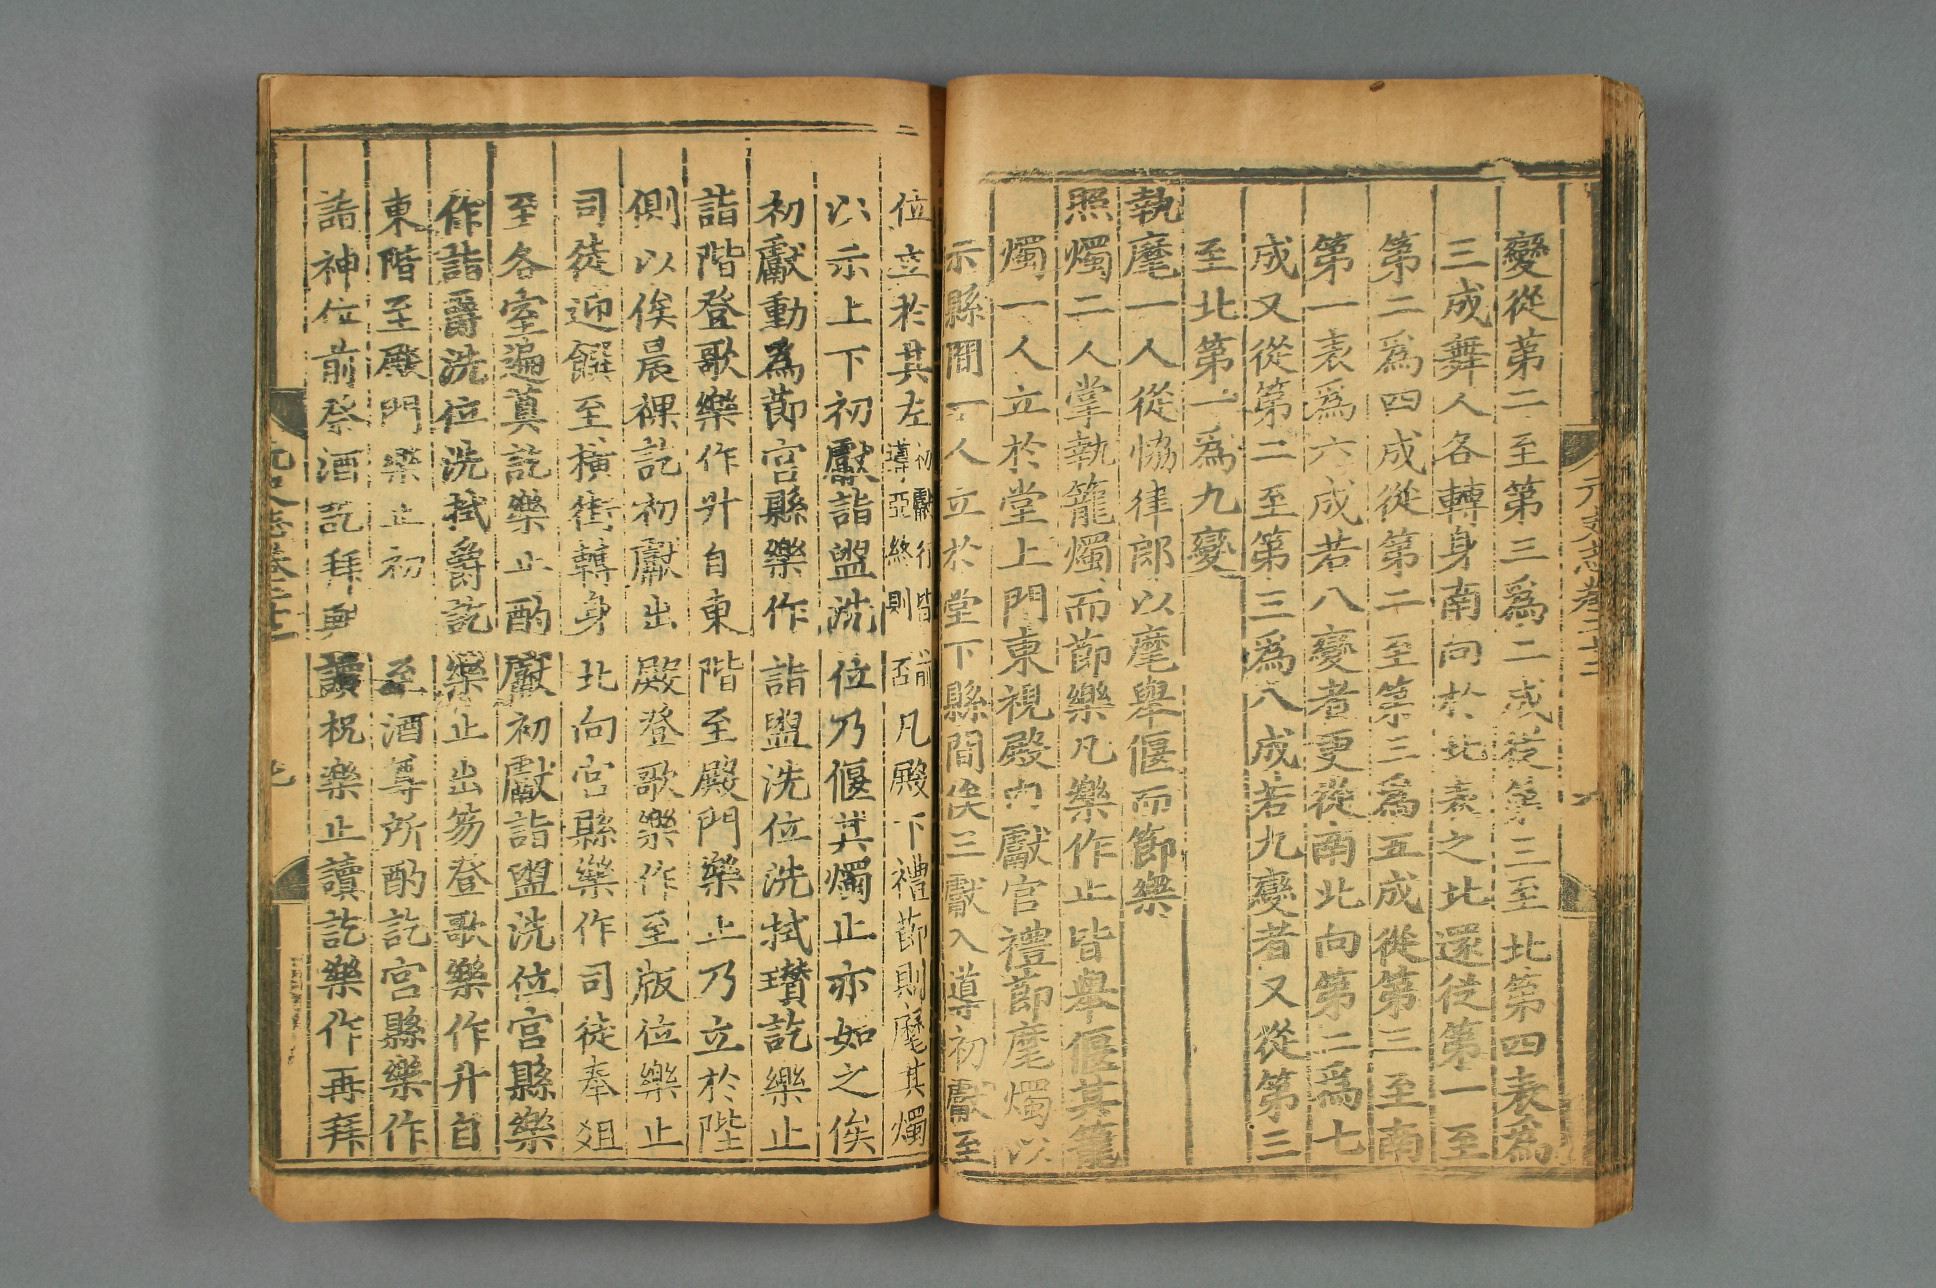 變從第二至第三爲二成從第三至北第四表爲
三成舞人各轉身南向於北表之北還從第一至
第二爲四成從第二至第三爲五成從第三至南
第一表爲六成若八變者更從南北向第二爲七
成又從第二至第三爲八成若九變者又從第三
至北第一爲九變
執麾一人從恊律郎以麾舉偃而節樂
照燭二人掌執籠燭而節樂凡樂作止皆舉偃其籠
燭一人立於堂上門東視殿中獻官禮節麾燭以
示縣間一人立於堂下縣間俟三獻入導初獻至
位立於其左初獻行皆導亞終則前亞凡殿下禮節則麾其燭
以示上下初獻詣盥洗位乃偃其燭止亦如之俟
初獻動為節宮縣樂作詣盥洗位洗拭瓚訖樂止
詣階登歌樂作升自東階至殿門樂止乃立於陛
側以俟晨祼訖初獻出殿登歌樂作至版位樂止
司徒迎饌至橫街轉身北向宮縣樂作司徒奉俎
至各室遍奠訖樂止酌獻初獻詣盥洗位宮縣樂
作詣爵洗位洗拭爵訖樂止出笏登歌樂作升自
東階至殿門樂止初至酒尊所酌訖宮縣樂作
詣神位前祭酒訖拜興讀祝樂止讀訖樂作再拜